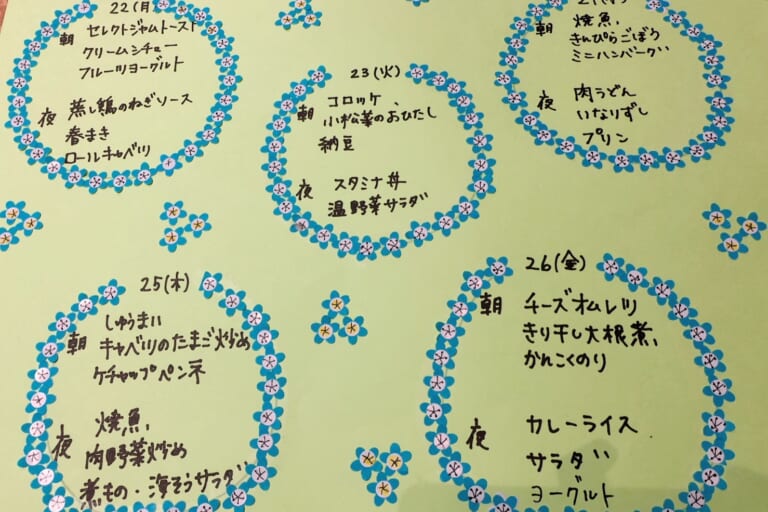 22(月)
朝 セレクトジャムトースト
クリームシチュー
フルーツヨーグルト
夜 蒸し鶏のねぎソース
春まき
ロールキャベツ
23(火)
朝 コロッケ、
小松菜のおひたし
納豆
夜 スタミナ丼
温野菜サラダ
朝 焼魚、
きんぴらごぼう
ミニハンバーグ
夜 肉うどん
いなりずし
プリン
25(木)
しゅうまい
朝 キャベツのたまご炒め
ケチャップペンネ
焼魚、
夜 肉野菜炒め
煮もの・海そうサラダ
26(金)
朝 チーズオムレツ
きり干し大根煮、
かんこくのり
夜 カレーライス
サラダ
ヨーグルト